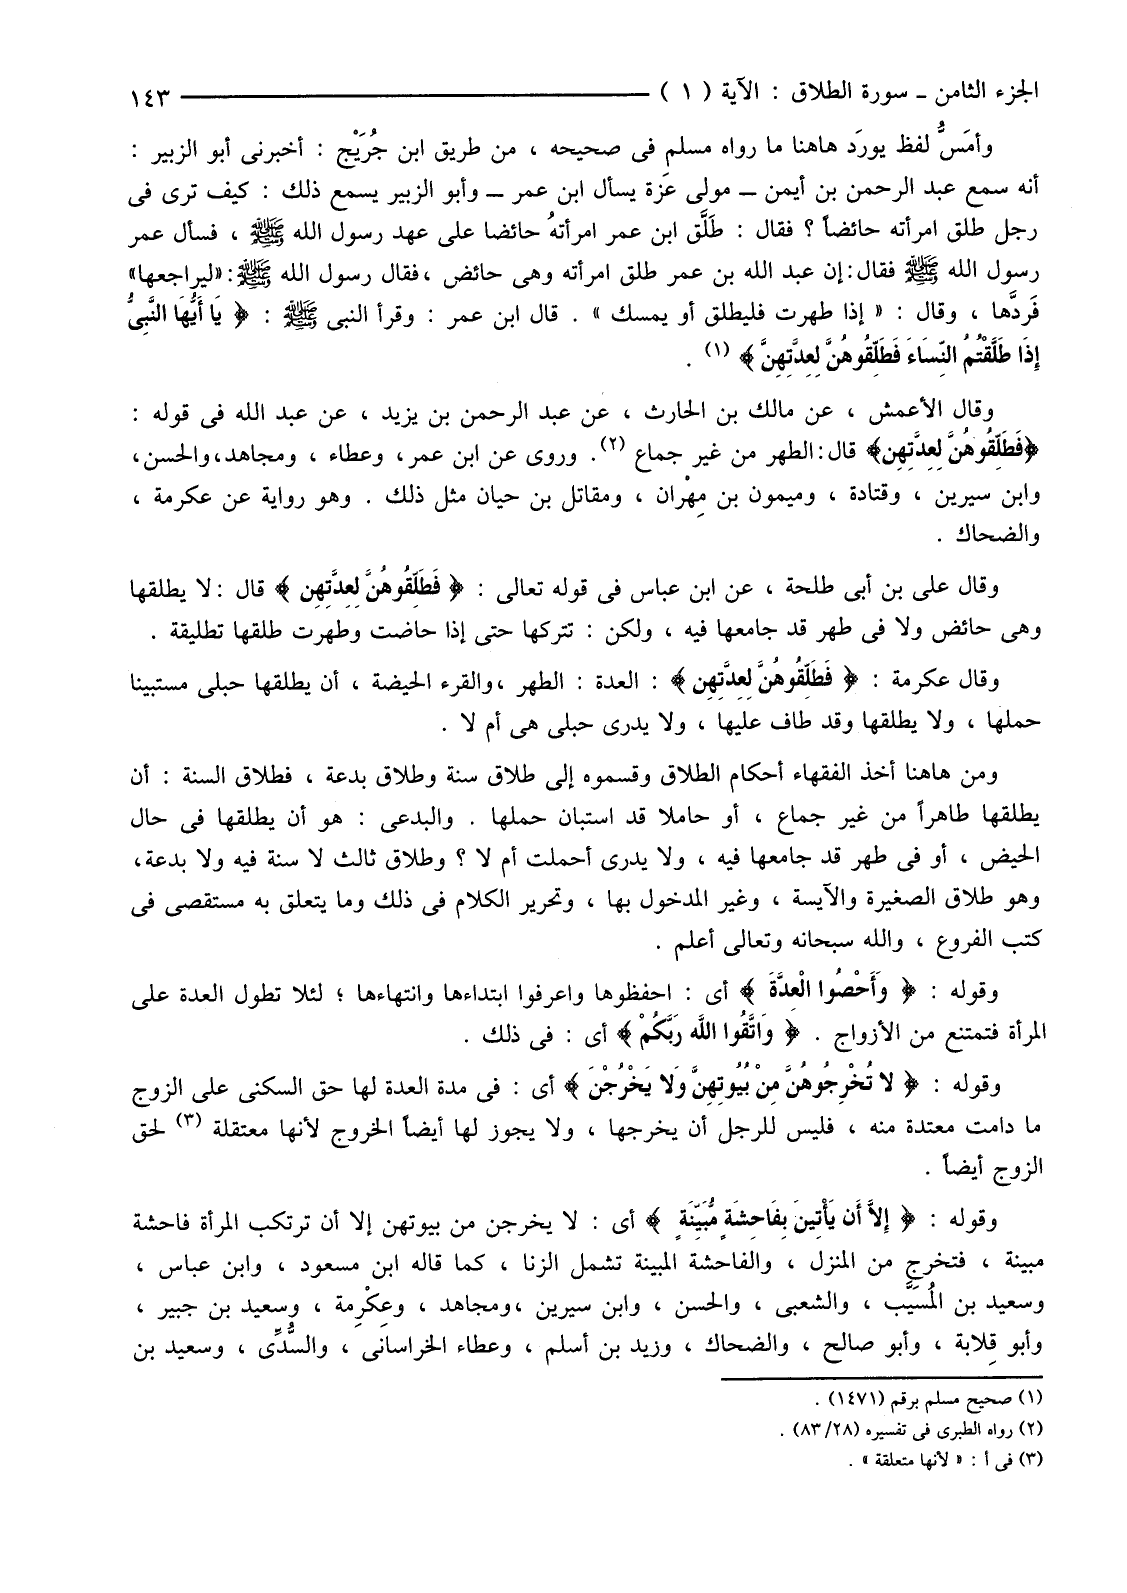 الجزء الثامن ـ سورة الطلاق : الآية ( ١ ) ـــــــ ١٤٣
وأمَسُّ لفظ يورَد هاهنا ما رواه مسلم فى صحيحه ، من طريق ابن جُرَيْج : أخبرنى أبو الزبير :
أنه سمع عبد الرحمن بن أيمن ـ مولى عَزة يسأل ابن عمر ـ وأبو الزبير يسمع ذلك : كيف ترى فى
رجل طلق امرأته حائضاً ؟ فقال : طَلَّق ابن عمر امرأتهُ حائضا على عهد رسول الله ﷺ ، فسأل عمر
رسول الله ﷺ فقال :إن عبد الله بن عمر طلق امرأته وهى حائض ،فقال رسول الله ﷺ :«ليراجعها»
فَردَّها ، وقال : « إذا طهرت فليطلق أو يمسك » . قال ابن عمر : وقرأ النبى ﷺ : ﴿ يَا أَيُّهَا النَّبِىُّ
إِذَا طَلَّقْتُمُ النِّسَاءَ فَطَلِّقُوهُنَّ لِعِدَّتِهِنَّ ﴾ (١) .
وقال الأعمش ، عن مالك بن الحارث ، عن عبد الرحمن بن يزيد ، عن عبد الله فى قوله :
﴿فَطَلِّقُوهُنَّ لِعِدَّتِهِن﴾ قال :الطهر من غير جماع (٢). وروى عن ابن عمر، وعطاء ، ومجاهد،والحسن،
وابن سيرين ، وقتادة ، وميمون بن مِهْران ، ومقاتل بن حيان مثل ذلك . وهو رواية عن عكرمة ،
والضحاك .
وقال على بن أبى طلحة ، عن ابن عباس فى قوله تعالى : ﴿ فَطَلِّقُوهُنَّ لِعِدَّتِهِن ﴾ قال :لا يطلقها
وهى حائض ولا فى طهر قد جامعها فيه ، ولكن : تتركها حتى إذا حاضت وطهرت طلقها تطليقة .
وقال عكرمة : ﴿ فَطَلِّقُوهُنَّ لِعِدَّتِهِن ﴾ : العدة : الطهر ،والقرء الحيضة ، أن يطلقها حبلى مستبينا
حملها ، ولا يطلقها وقد طاف عليها ، ولا يدرى حبلى هى أم لا .
ومن هاهنا أخذ الفقهاء أحكام الطلاق وقسموه إلى طلاق سنة وطلاق بدعة ، فطلاق السنة : أن
يطلقها طاهراً من غير جماع ، أو حاملا قد استبان حملها . والبدعى : هو أن يطلقها فى حال
الحيض ، أو فى طهر قد جامعها فيه ، ولا يدرى أحملت أم لا ؟ وطلاق ثالث لا سنة فيه ولا بدعة،
وهو طلاق الصغيرة والآيسة ، وغير المدخول بها ، وتحرير الكلام فى ذلك وما يتعلق به مستقصى فى
كتب الفروع ، والله سبحانه وتعالى أعلم .
وقوله : ﴿ وَأَحْصُوا الْعِدَّةَ ﴾ أى : احفظوها واعرفوا ابتداءها وانتهاءها ؛ لئلا تطول العدة على
المرأة فتمتنع من الأزواج . ﴿ وَاتَّقُوا اللَّهَ رَبَّكُمْ ﴾ أى : فى ذلك .
وقوله : ﴿ لا تُخْرِجُوهُنَّ مِنْ بُيُوتِهِنَّ وَلا يَخْرُجْنَ ﴾ أى : فى مدة العدة لها حق السكنى على الزوج
ما دامت معتدة منه ، فليس للرجل أن يخرجها ، ولا يجوز لها أيضاً الخروج لأنها معتقلة (٣) لحق
الزوج أيضاً .
وقوله : ﴿ إِلاَّ أَن يَأْتِينَ بِفَاحِشَةٍ مُّبَيِّنَةٍ ﴾ أى : لا يخرجن من بيوتهن إلا أن ترتكب المرأة فاحشة
مبينة ، فتخرج من المنزل ، والفاحشة المبينة تشمل الزنا ، كما قاله ابن مسعود ، وابن عباس ،
وسعيد بن المُسَيَّب ، والشعبى ، والحسن ، وابن سيرين ،ومجاهد ، وعِكْرِمة ، وسعيد بن جبير ،
وأبو قِلابة ، وأبو صالح ، والضحاك ، وزيد بن أسلم ، وعطاء الخراسانى ، والسُّدِّى ، وسعيد بن
(١) صحيح مسلم برقم (١٤٧١) .
(٢) رواه الطبرى فى تفسيره (٢٨/ ٨٣) .
(٣) فى أ : « لأنها متعلقة » .